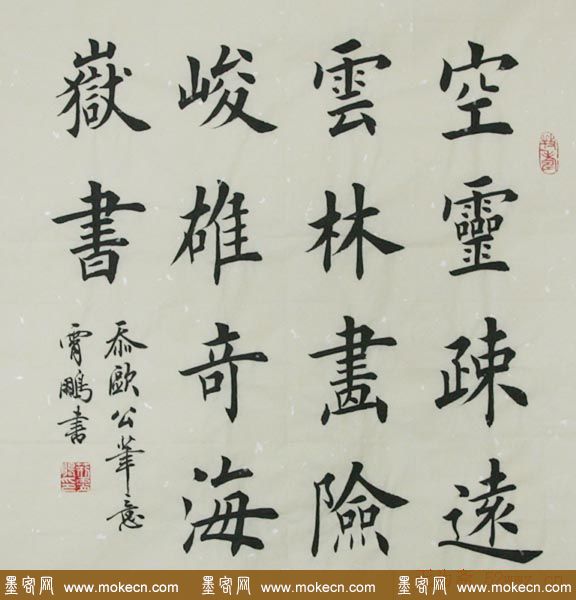 空靈疎遠
雲林畫險
峻雄奇海
嶽書
忝歐公筆意
霄鵬书
墨客网 www.mokecn.com 墨客网 www.mokecn.com 墨客网 www.mokecn.com